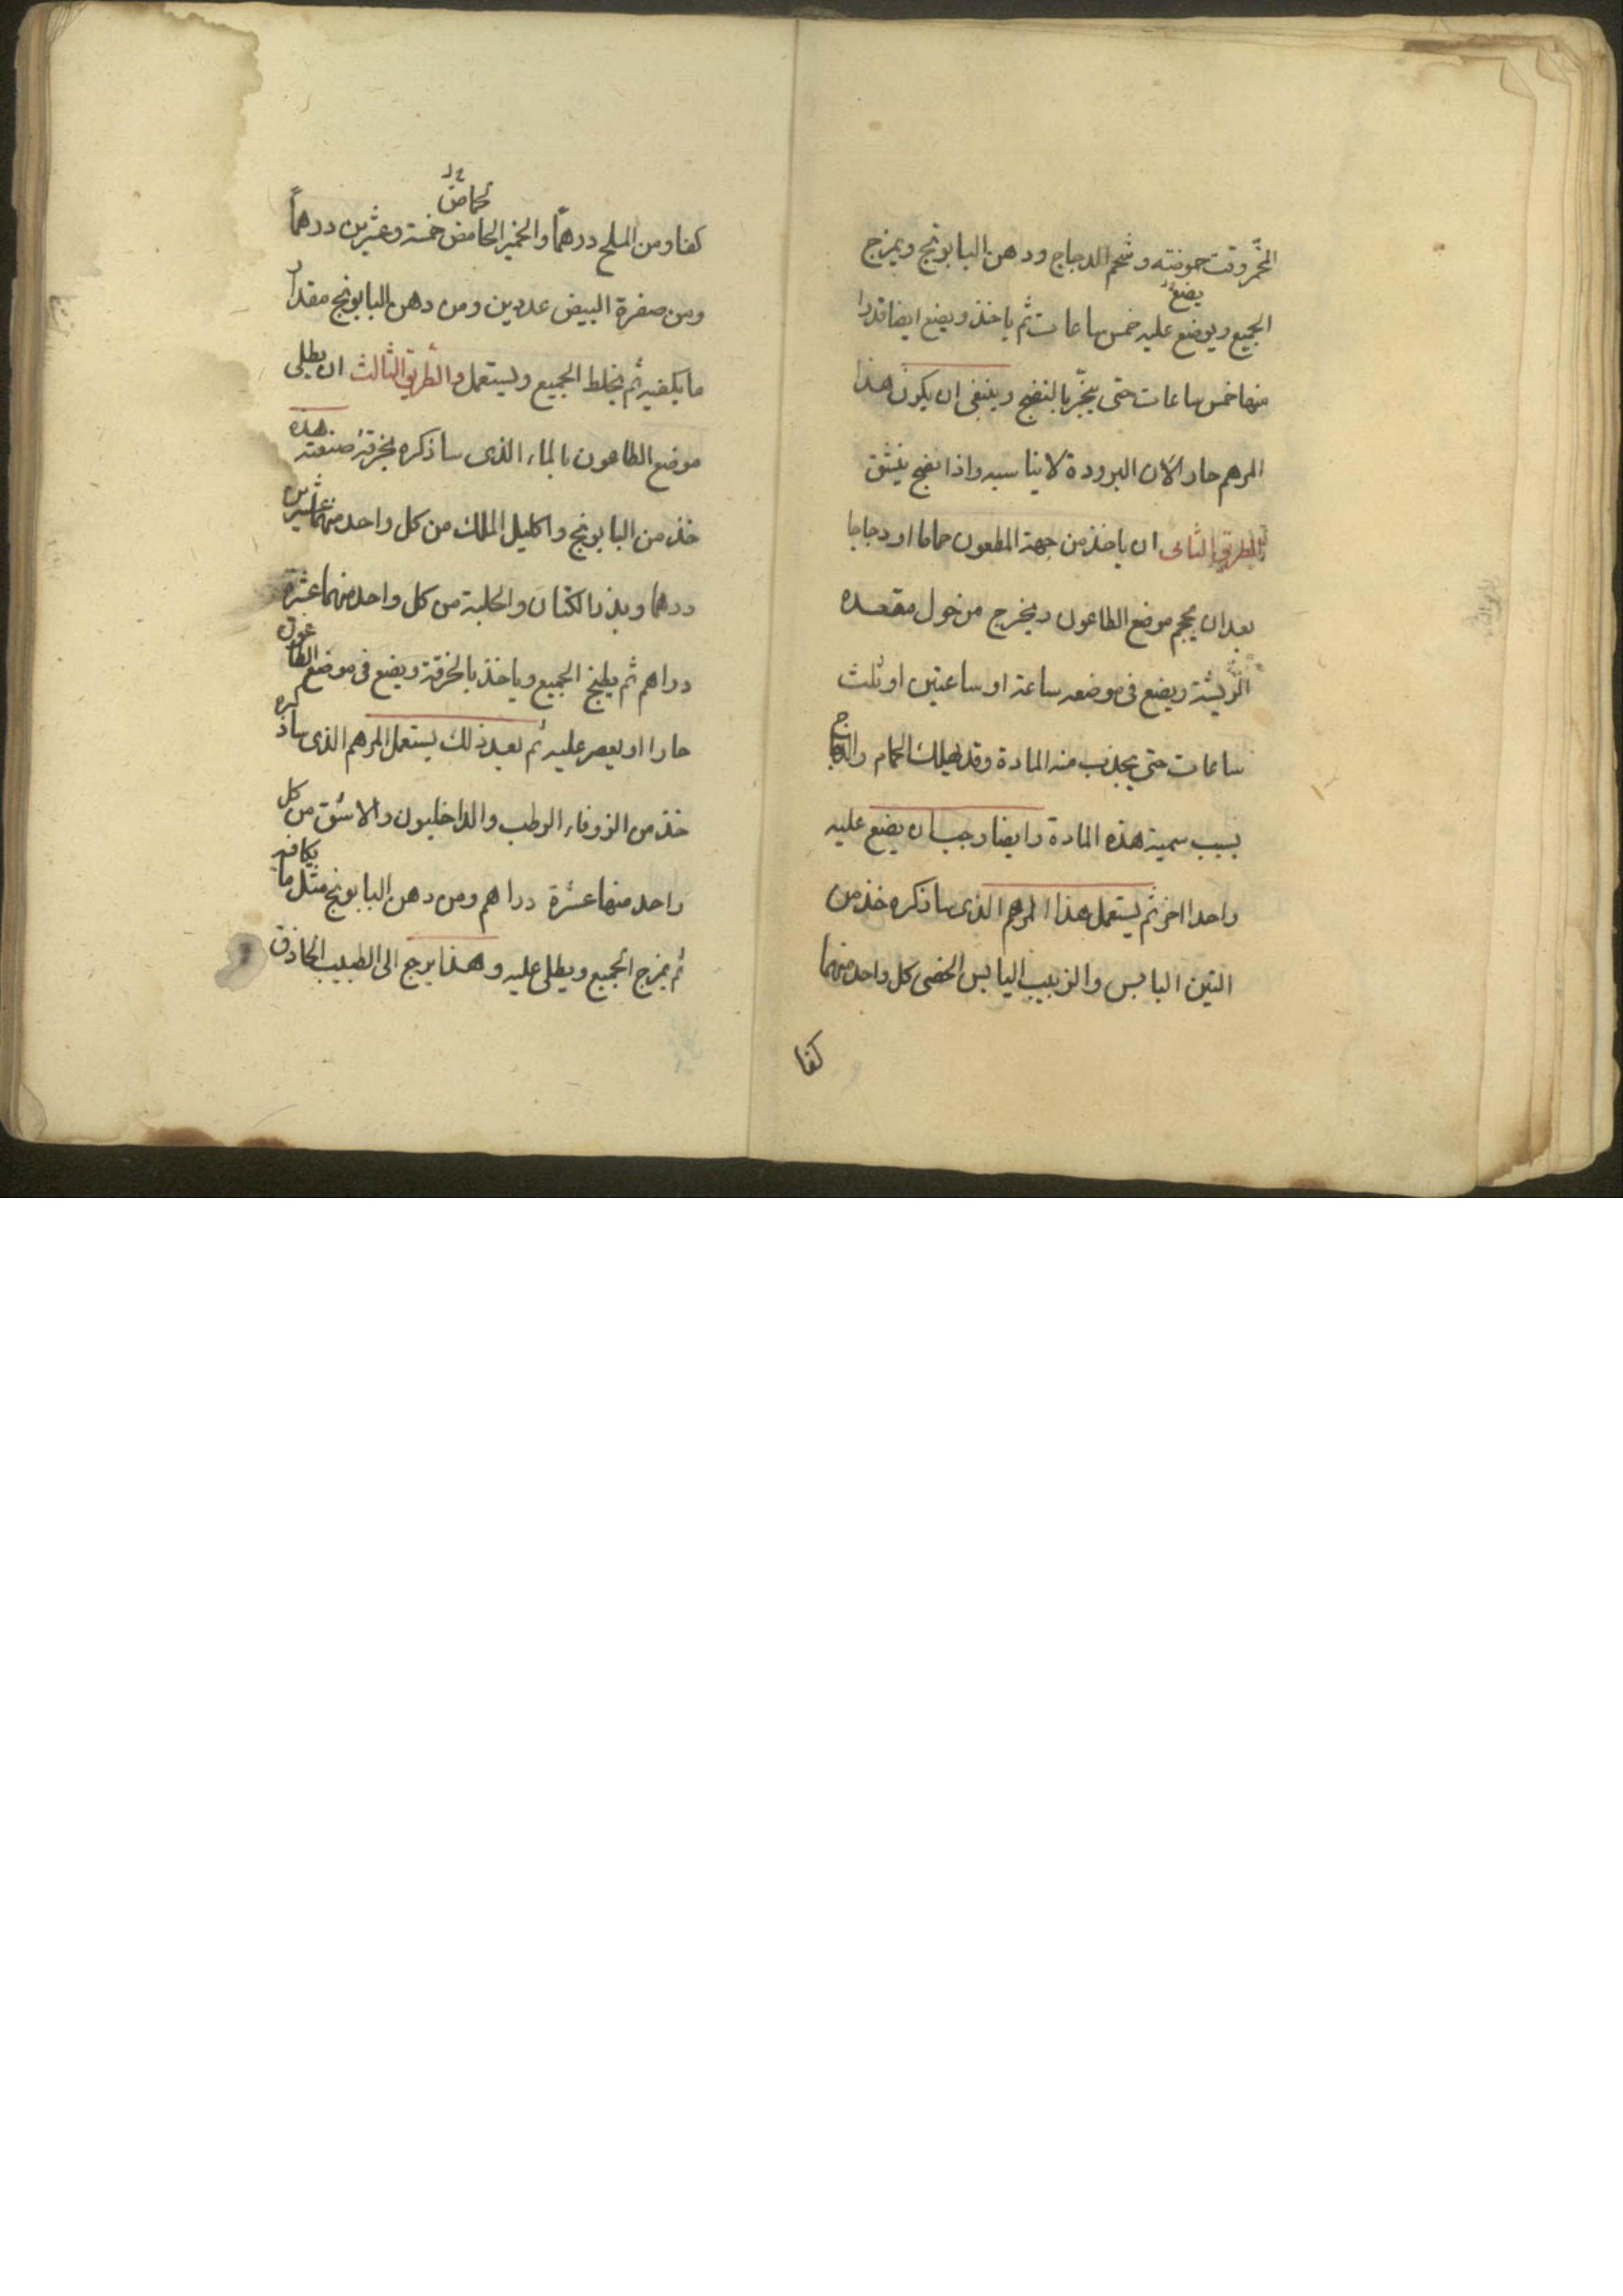 المخمر وقت حموضته وشحم الدجاج ودهن البابونج ويمزج
يضع
الجميع ويوضع عليه خمس ساعات ثم ياخذ ويضع ايضا قدرا
منها خمس ساعات حتى ينجر بالنضج وينبغى ان يكون هذا
المرهم حار الآن البرودة لا يناسبه واذا نضج ينشق
والطريق الثانى ان ياخذ من جهة المطعون حماما او دجاجا
بعد ان يحجم موضع الطاعون ويخرج من حول مقعده
الريشة ويضع فى موضعه ساعة او ساعتين او ثلث
ساعات حتى يجذب منه المادة وقد يهلك الحمام والدجاج
بسبب سمية هذه المادة وايضا وجب ان يضع عليه
واحدا اخر ثم يستعمل هذا المرهم الذى ساذكره خذ من
التين اليابس والزبيب اليابس الخضى كل واحد منهما
كفا
حماض
كفا ومن الملح درهما والخمير الحامض خمسة وعشرين درهماً
ومن صفرة البيض عددين ومن دهن البابونج مقدار
ما يكفيه ثم يخلط الجميع ويستعمل والطريق الثالث ان يطلى
موضع الطاعون بالماء الذى ساذكره بخرقة صنعته هذه
خذ من البابونج واكليل الملك من كل واحد منهما عشرين
درهما وبذر الكتان والحلبة من كل واحد منهما عشرة
دراهم ثم يطبخ الجميع وياخذ بالخرقة ويضع فى موضع الطاعون
حارا او يعصر عليه ثم بعد ذلك يستعمل المرهم الذى ساذكره
خذ من الزوفاء الرطب والداخليون والاشق من كل
واحد منها عشرة دراهم ومن دهن البابونج مثل ما يكافيه
ثم يمزج الجميع ويطلى عليه وهذا يرجع الى الطبيب الحاذق